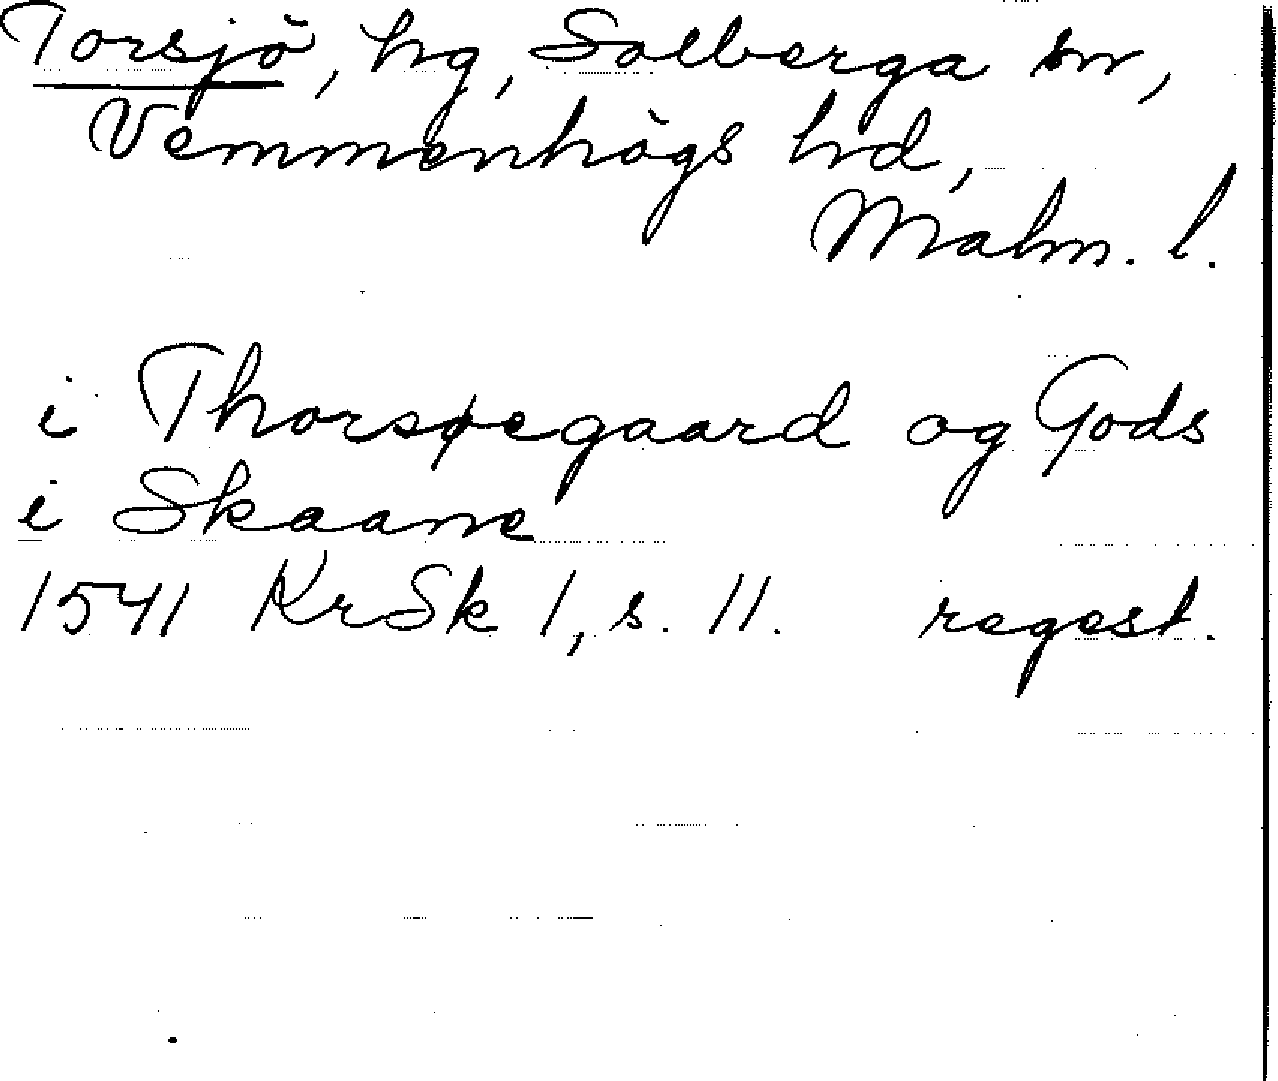 Torsjö, hg, Solberga sn,
Vemmenhögs hd,
Malm. l.
i Thorsøegaard og Gods
i Skaane
1541 KrSk 1, s. 11. regest.